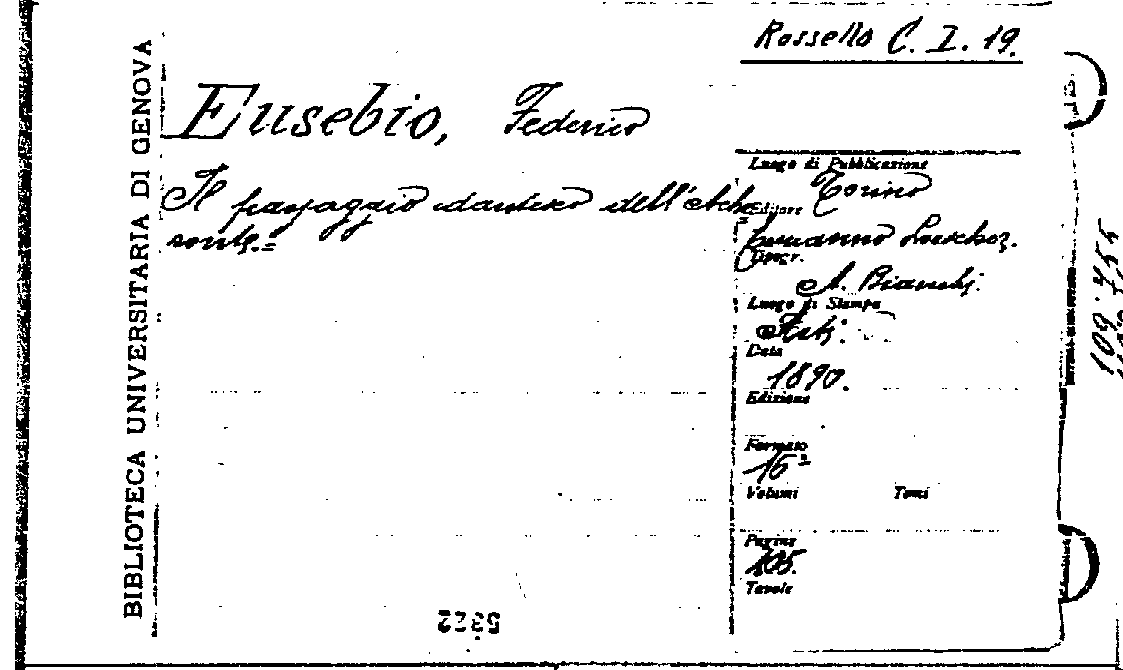 Rossello C. I. 19.
BIBLIOTECA UNIVERSITARIA DI GENOVA
Eusebio, Federico
Il passaggio dantesco dell'Ache
ronte.=
Luogo di Pubblicazione
Torino
Editore
Ermanno Loescher.
Tipogr.
A. Bianchi.
Luogo di Stampa
Asti.
Data
1890.
Edizione
Formato
16°
Volumi Tomi
Pagine
105.
Tavole
5322
109.755